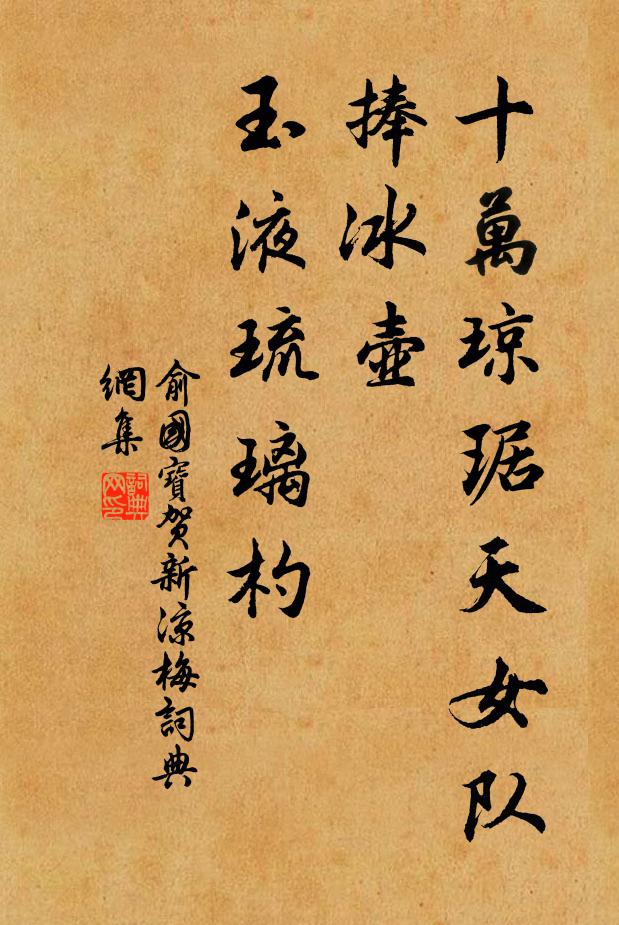 十萬琼琚天女队
捧冰壺
玉液琉璃杓
俞國寶賀新涼梅詞典
網集
詞典網印